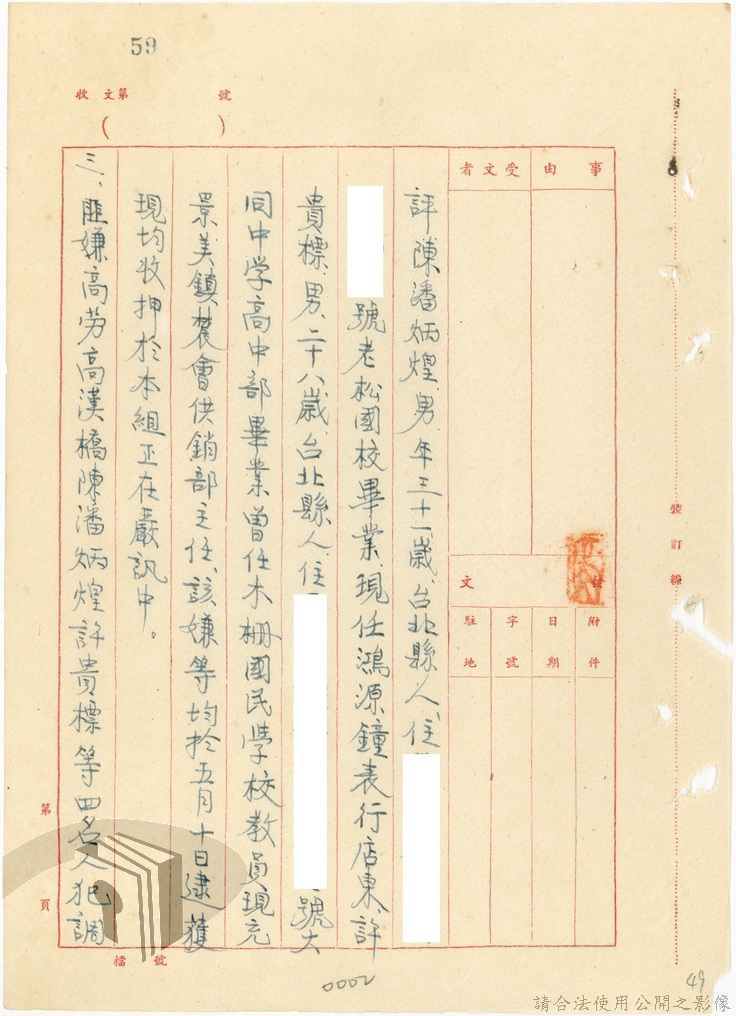 59
收文第 號
( )
事由
受文者
發文
附件
日期
字號
駐地
評陳潘炳煌、男、年三十一歲、台北縣人、住
號老松國校畢業、現任鴻源鐘表行店東、許
貴標、男、二十八歲、台北縣人、住 號大
同中学高中部畢業曾任木柵國民學校教員現充
景美鎮農會供銷部主任、該嫌等均於五月十日逮獲
現均收押於本組正在嚴訊中。
三、匪嫌高勞高漢橋陳潘炳煌許貴標等四名人犯調
裝訂線
第 頁
檔號
0002
49
請合法使用公開之影像